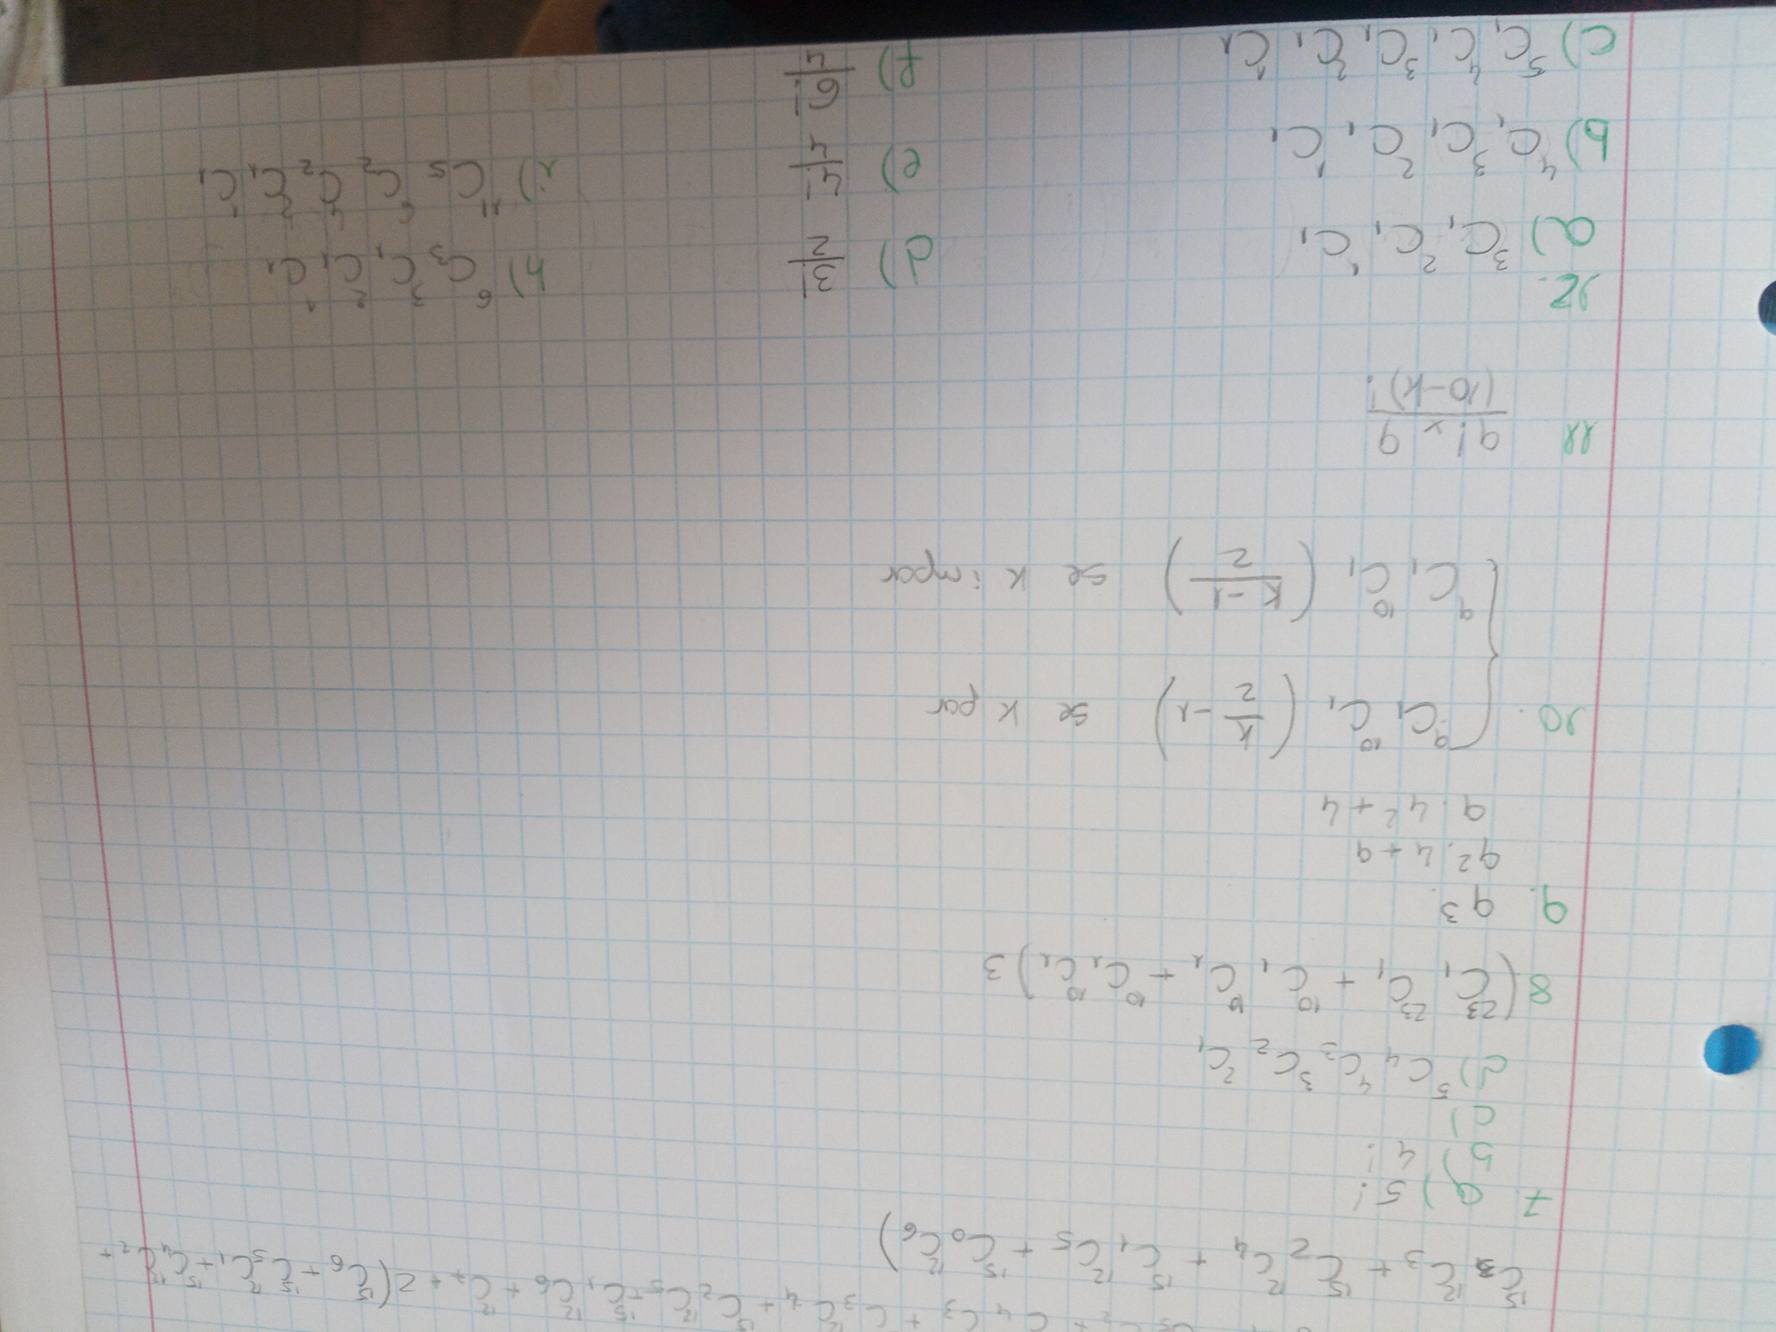 C₄ C₃ + C₃ ¹²C₄ + ¹⁵C₂ ¹²C₅ + ¹⁵C₁ ¹²C₆ + ¹²C₇ + 2(¹⁵C₆ + ¹⁵C₅ ¹²C₁ + ¹⁵C₄ ¹²C₂ +
¹⁵C₃ ¹²C₃ + ¹⁵C₂ ¹²C₄ + ¹⁵C₁ ¹²C₅ + ¹⁵C₀ ¹²C₆)
7. a) 5!
b) 4!
c)
d) ⁵C₄ ⁴C₃ ³C₂ ²C₁
8 (²³C₁ ²³C₁ + ¹⁰C₁ ¹⁰C₁ + ¹⁰C₁ ¹⁰C₁) 3
9. 9³.
9².4+9
9.4²+4
10. { ⁹C₁ ¹⁰C₁ (k/2 -1) se k par
⁹C₁ ¹⁰C₁ (k-1/2) se k impar
11 9! x 9/(10-k)!
12.
a) ³C₁ ²C₁ ¹C₁
b) ⁴C₁ ³C₁ ²C₁ ¹C₁
c) ⁵C₁ ⁴C₁ ³C₁ ²C₁ ¹C₁
d) 3!/2
e) 4!/4
f) 6!/4
h) ⁶C₃ ³C₁ ²C₁ ¹C₁
i) ¹¹C₅ ⁶C₂ ⁴C₂ ²C₁ ¹C₁